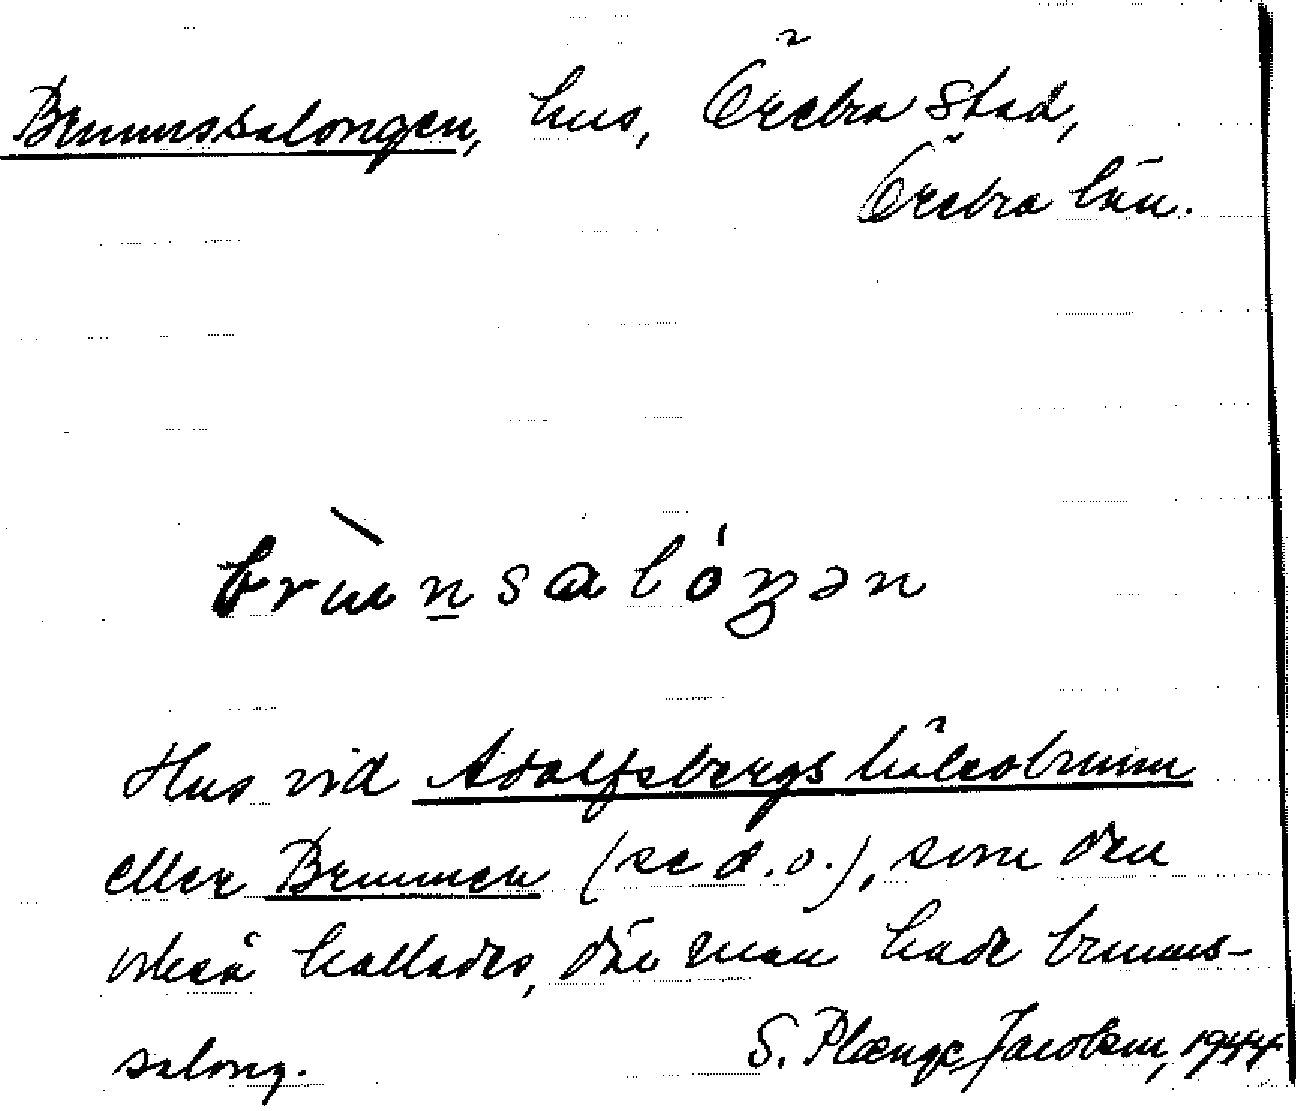 Brunnssalongen, hus, Örebro stad,
Örebro län.
brùn̲salóŋən
Hus vid Adolfsbergs hälsobrunn
eller Brunnen (se d.o.), som den
också kallades, där man hade brunns-
salong.
S. Plænge Jacobson, 1944.